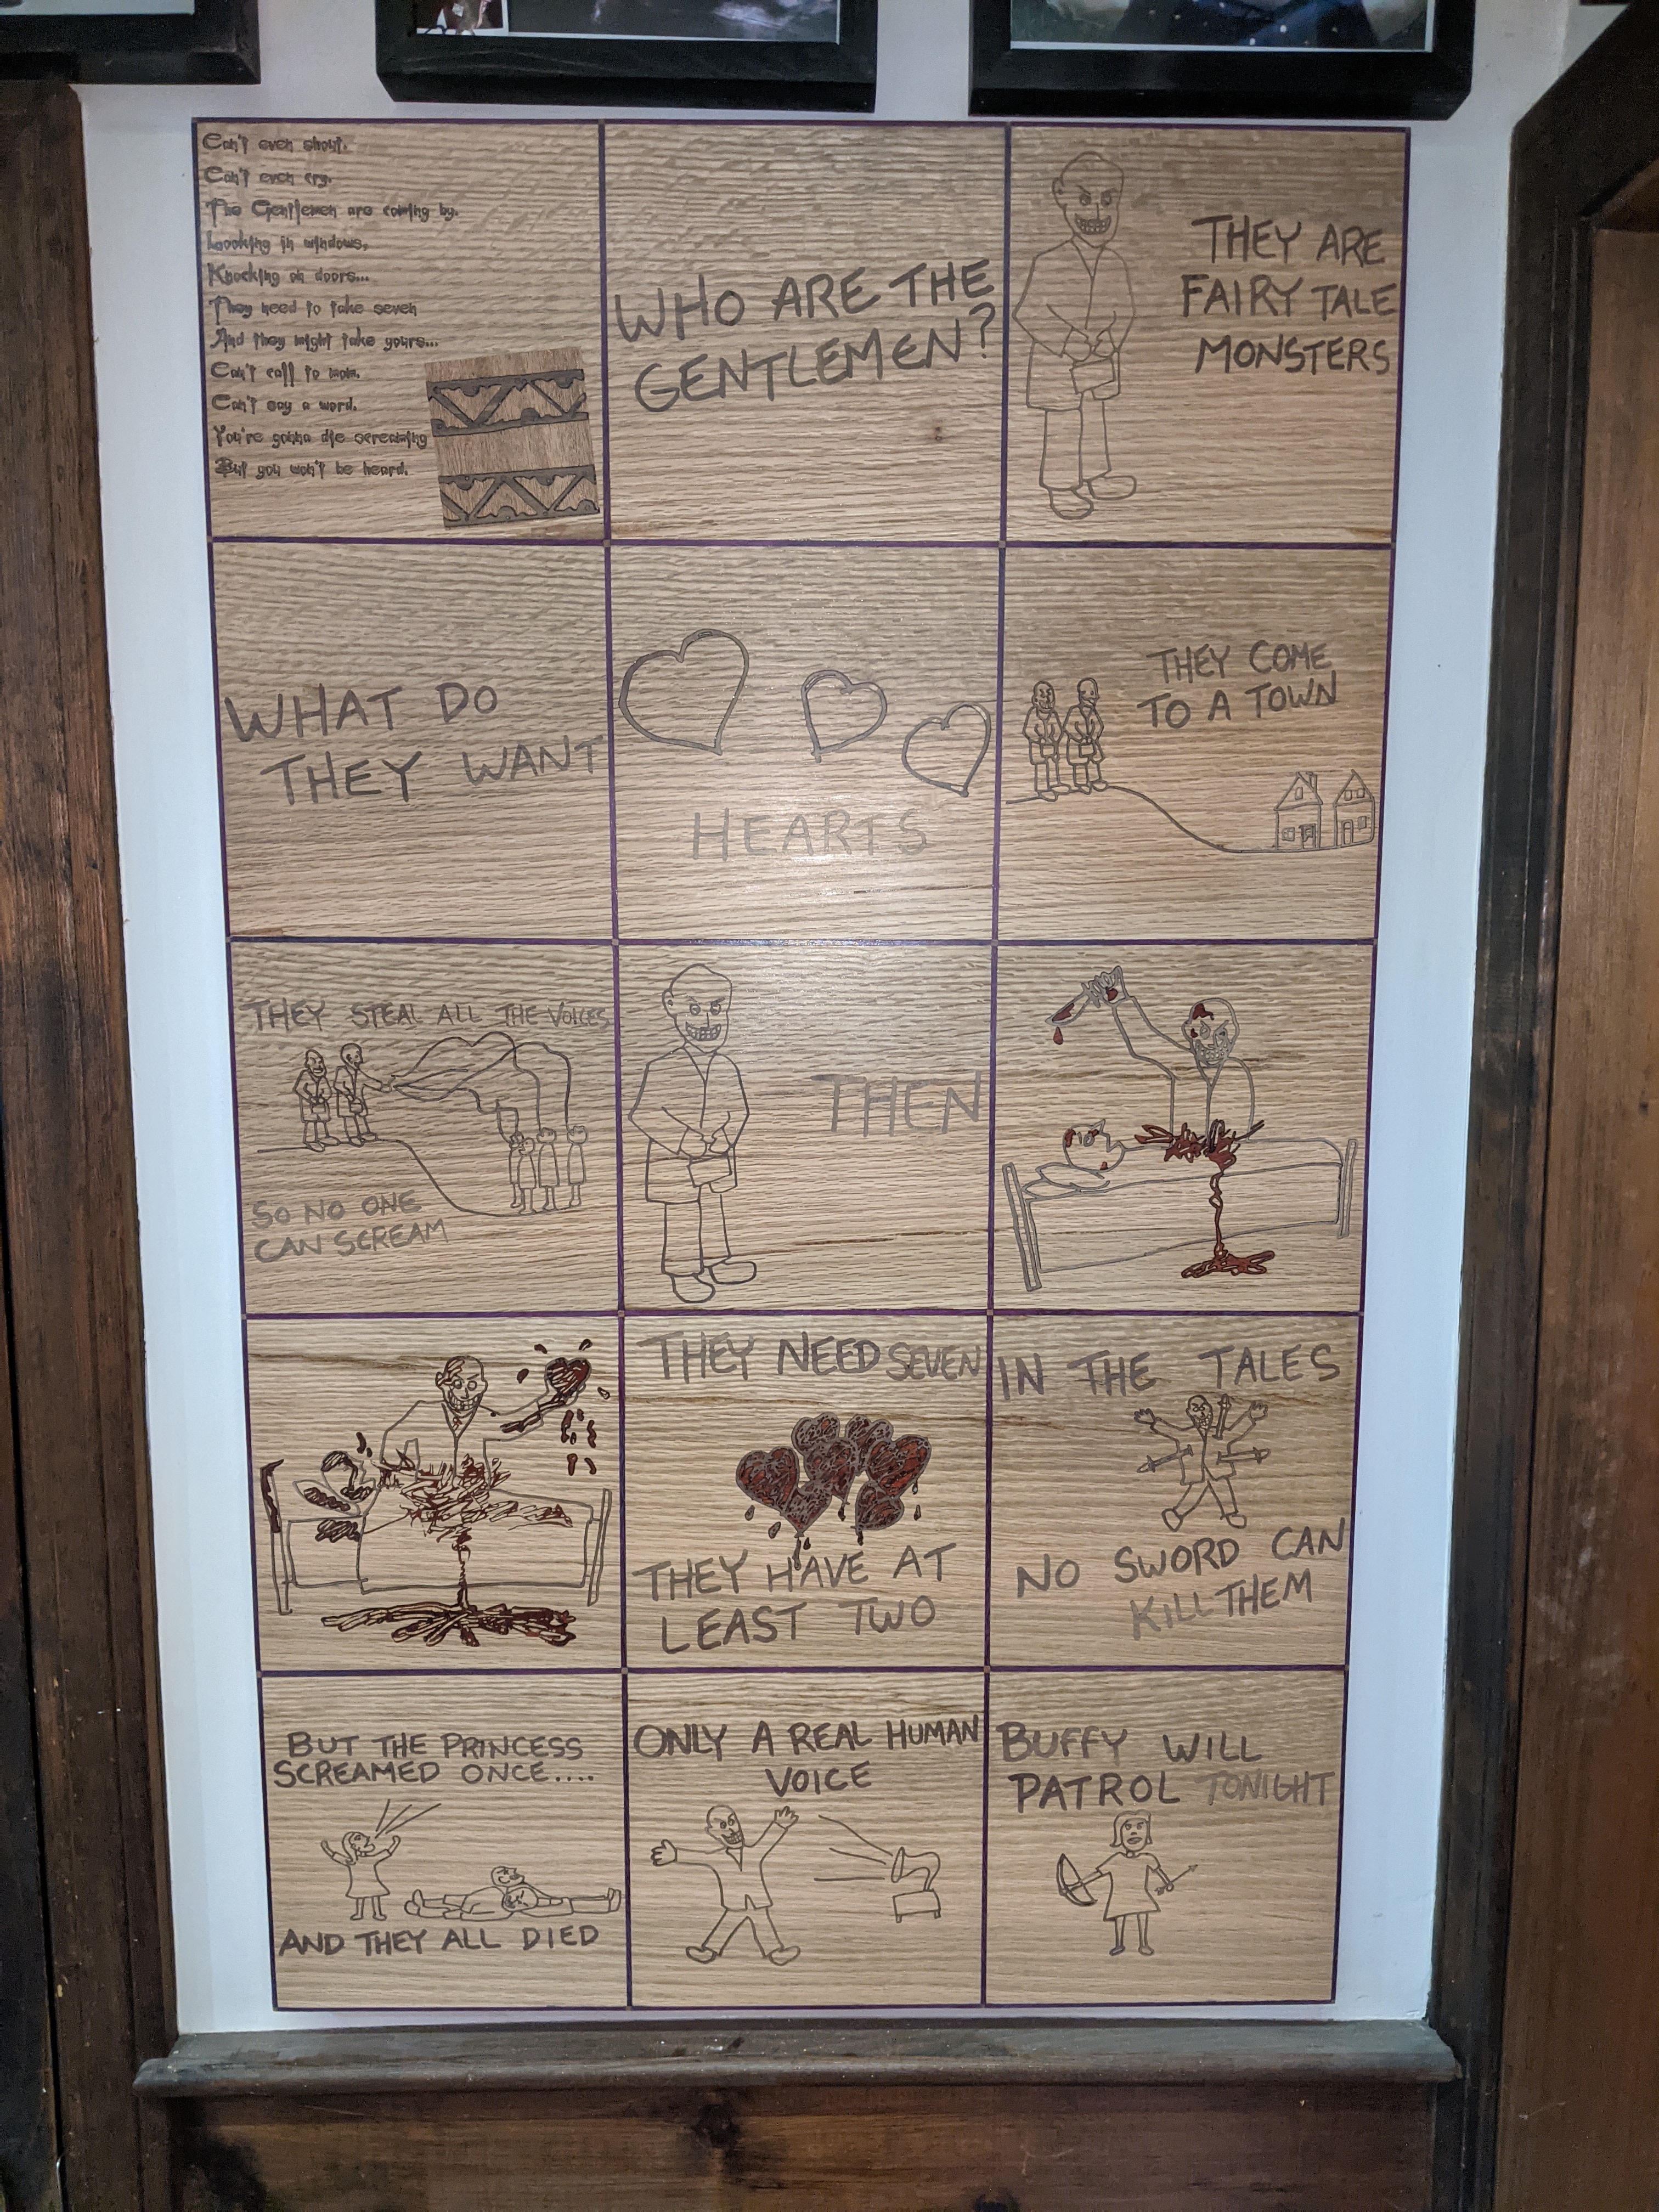 Can't even shout.
Can't even cry.
The Gentlemen are coming by.
Looking in windows,
Knocking on doors...
They need to take seven
And they might take yours...
Can't call to mom.
Can't say a word.
You're gonna die screaming
But you won't be heard.
WHO ARE THE
GENTLEMEN?
THEY ARE
FAIRY TALE
MONSTERS
WHAT DO
THEY WANT
HEARTS
THEY COME
TO A TOWN
THEY STEAL ALL THE VOICES
SO NO ONE
CAN SCREAM
THEN
THEY NEED SEVEN
THEY HAVE AT
LEAST TWO
IN THE TALES
NO SWORD CAN
KILL THEM
BUT THE PRINCESS
SCREAMED ONCE....
AND THEY ALL DIED
ONLY A REAL HUMAN
VOICE
BUFFY WILL
PATROL TONIGHT